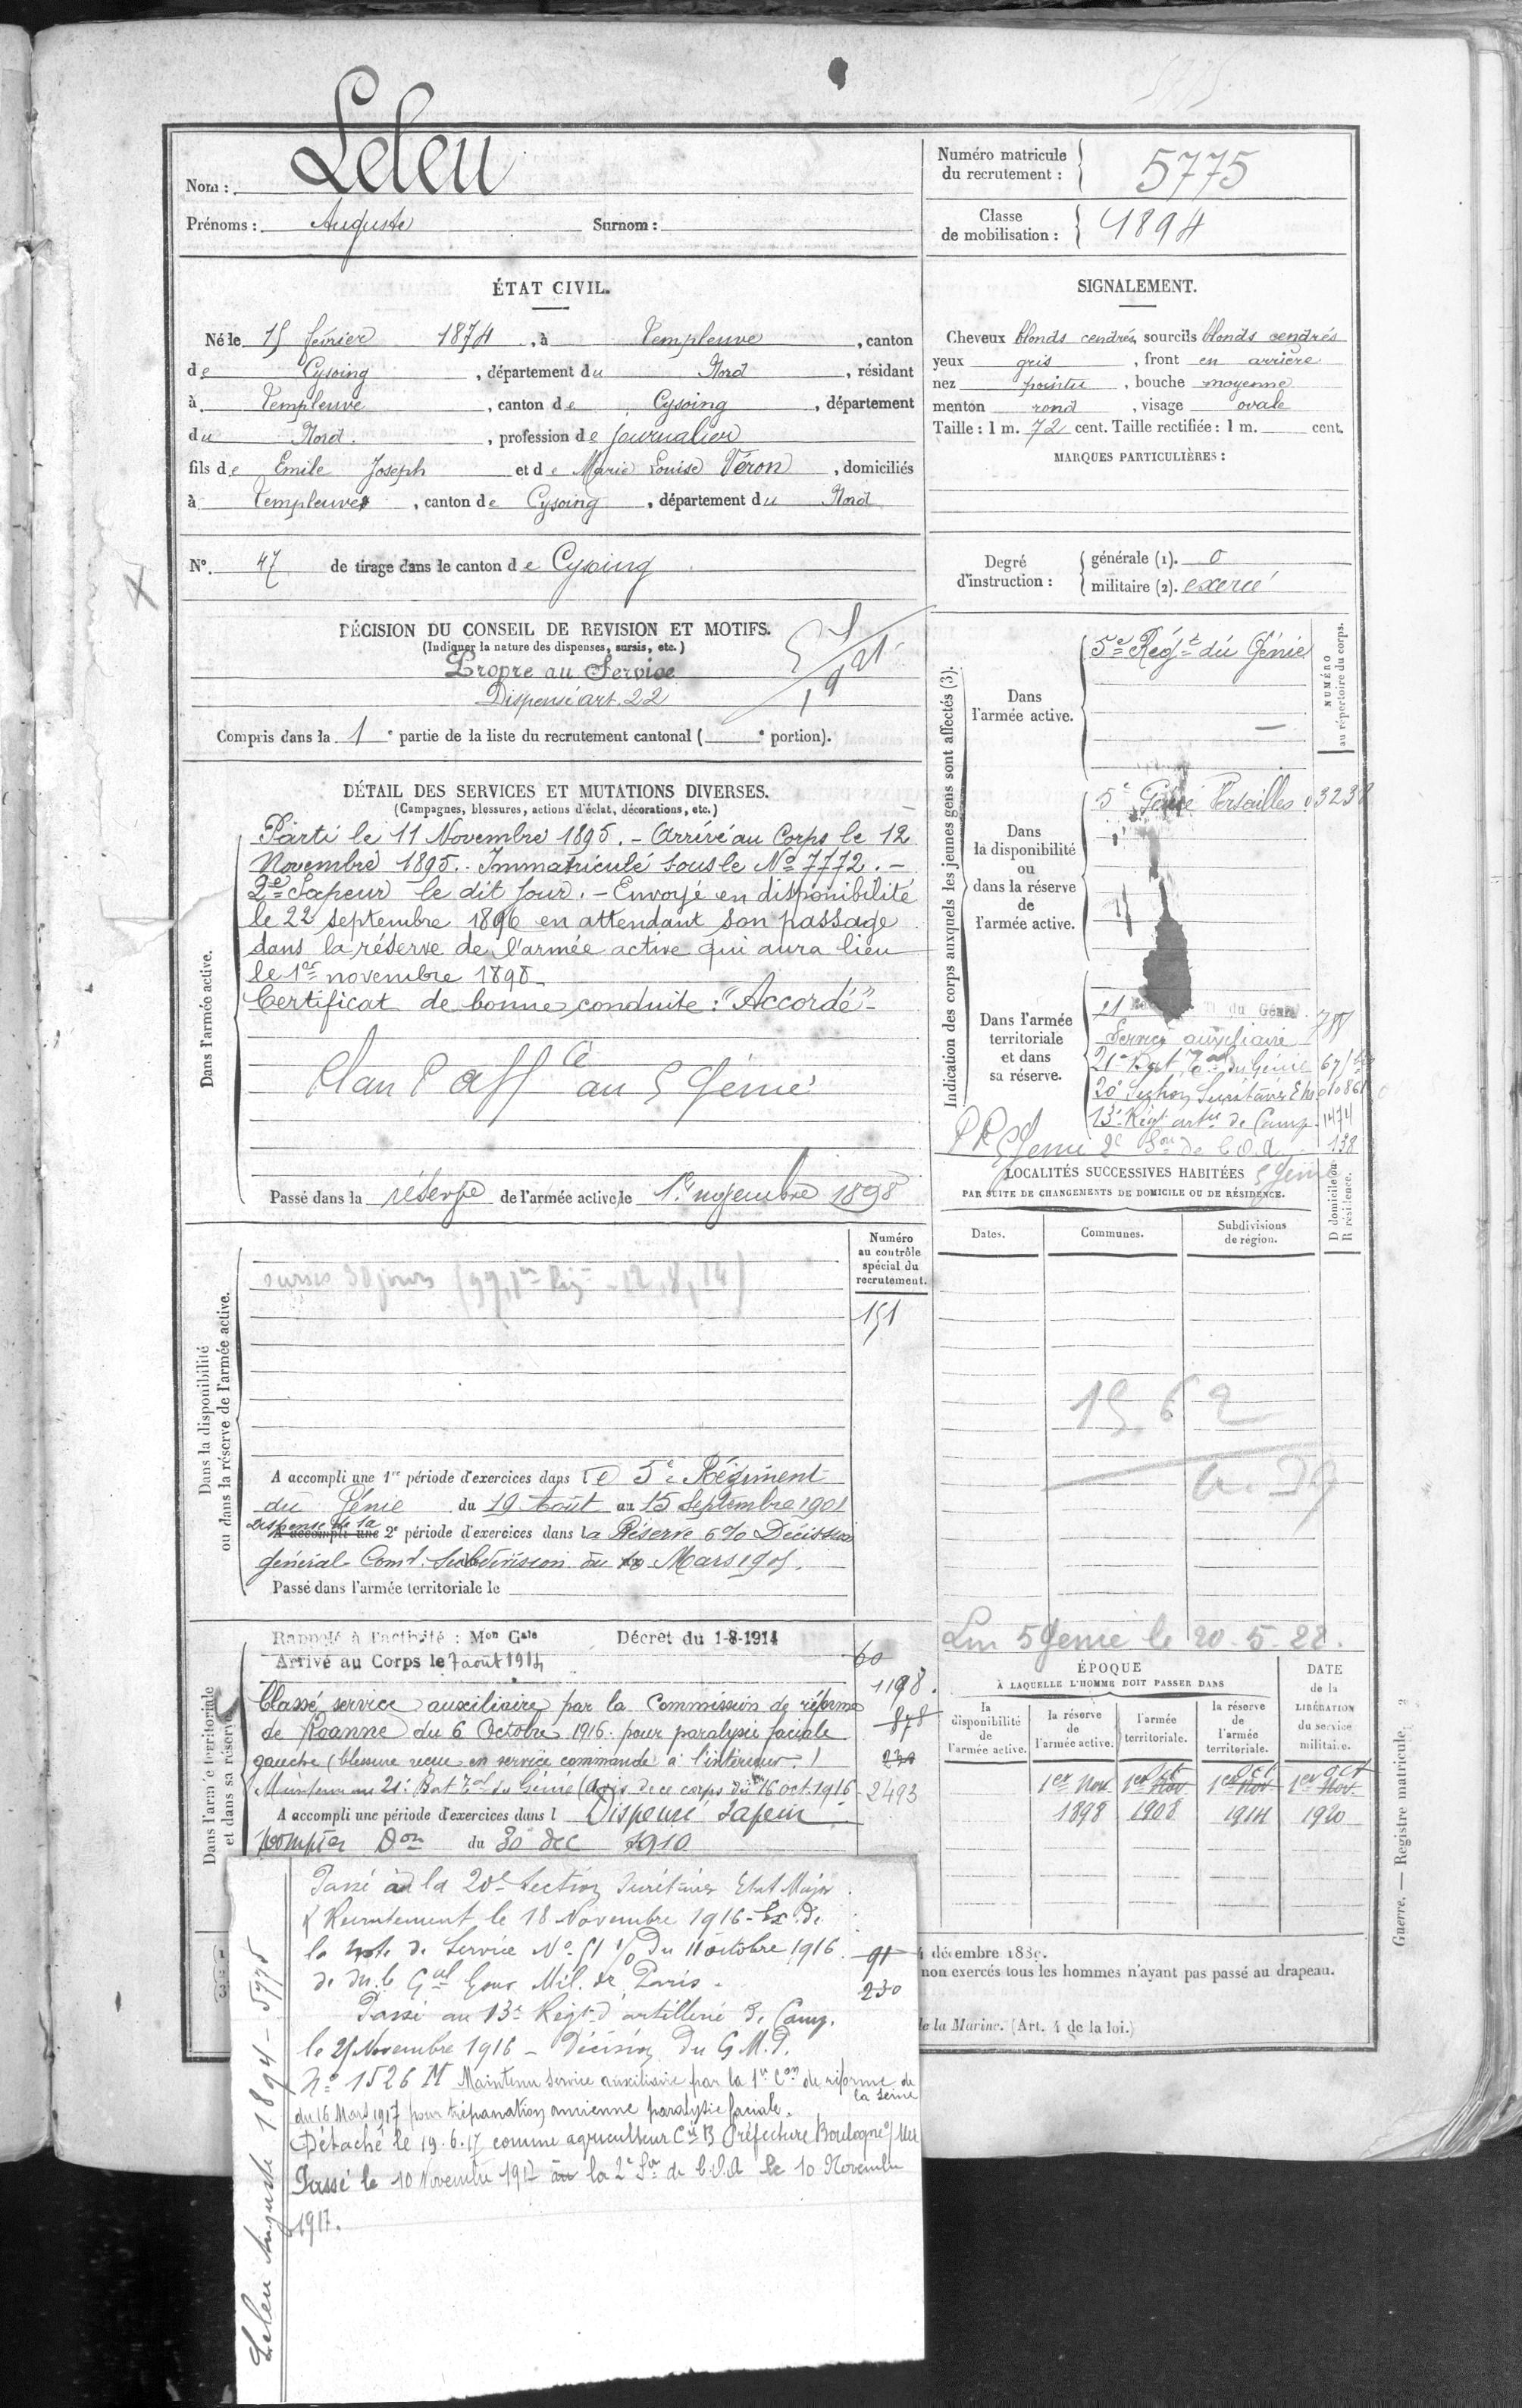 Nom : Leleu
Prénoms : Auguste Surnom :
Numéro matricule du recrutement : 5775
Classe de mobilisation : 1894
ÉTAT CIVIL.
Né le 15 février 1874, à Templeuve, canton
de Cysoing, département du Nord, résidant
à Templeuve, canton de Cysoing, département
du Nord, profession de journalier
fils de Emile Joseph et de Marie Louise Véron, domiciliés
à Templeuve, canton de Cysoing, département du Nord
SIGNALEMENT.
Cheveux blonds cendrés, sourcils blonds cendrés
yeux gris, front en arrière
nez pointu, bouche moyenne
menton rond, visage ovale
Taille : 1 m. 72 cent. Taille rectifiée : 1 m. cent.
MARQUES PARTICULIÈRES :
N° 47 de tirage dans le canton de Cysoing
Degré d'instruction : générale (1). 0
militaire (2). exercé
DÉCISION DU CONSEIL DE REVISION ET MOTIFS.
(Indiquer la nature des dispenses, sursis, etc.)
Propre au Service
Dispensé art. 22
Compris dans la 1e partie de la liste du recrutement cantonal ( e portion).
DÉTAIL DES SERVICES ET MUTATIONS DIVERSES.
(Campagnes, blessures, actions d'éclat, décorations, etc.)
Dans l'armée active.
Parti le 11 Novembre 1895. - Arrivé au Corps le 12
Novembre 1895. Immatriculé sous le No 7772. -
2e Sapeur le dit jour. - Envoyé en disponibilité
le 22 septembre 1896 en attendant son passage
dans la réserve de l'armée active qui aura lieu
le 1er novembre 1898
Certificat de bonne conduite : "Accordé" -
Plan P affté au 5 Génie
Passé dans la réserve de l'armée active le 1er novembre 1898
Indication des corps auxquels les jeunes gens sont affectés (3).
NUMÉRO au répertoire du corps.
Dans l'armée active.
5e Régt du Génie
Dans la disponibilité ou dans la réserve de l'armée active.
5e Génie Versailles
Dans l'armée territoriale et dans sa réserve.
21 du Génie
Service auxiliaire
21e Bat Tal du Génie
13e Régt artie de Camp. 1474
2e Son de C.O.A. 138
LOCALITÉS SUCCESSIVES HABITÉES
PAR SUITE DE CHANGEMENTS DE DOMICILE OU DE RÉSIDENCE.
Dates. Communes. Subdivisions de région. D domicile ou R résidence.
1562
Dans la disponibilité ou dans la réserve de l'armée active.
Numéro au contrôle spécial du recrutement.
sursis 30 jours
151
A accompli une 1re période d'exercices dans le 5e Régiment
du Génie du 19 Août au 15 Septembre 1901
Dispensé de la
A accompli une 2e période d'exercices dans la Réserve 6% Décision
Général Comt Subdivision du Mars 1905.
Passé dans l'armée territoriale le
Dans l'armée territoriale et dans sa réserve
Rappelé à l'activité : Mon Gale Décret du 1-8-1914
Arrivé au Corps le 7 août 1914
60
1198.
878
230
2493
Classé service auxiliaire par la Commission de réforme
de Roanne du 6 Octobre 1916 pour paralysie faciale
gauche (blessure reçue en service commandé à l'intérieur)
Maintenu au 21e Bat Tal du Génie (Avis de ce corps du 16 oct. 1916
A accompli une période d'exercices dans l Dispensé Sapeur
pompier Don du 30 Dec 1910
Lm 5 Génie le 20-5-22.
ÉPOQUE
À LAQUELLE L'HOMME DOIT PASSER DANS
DATE de la LIBÉRATION du service militaire.
la disponibilité de l'armée active.
la réserve de l'armée active.
l'armée territoriale.
la réserve de l'armée territoriale.
1er Nov. 1898
1er Nov Oct 1908
1er Nov Oct 1914
1er Nov. Oct 1920
Guerre. — Registre matricule.
Passé à la 20e Section Secrétaires Etat Major
& Recrutement le 18 Novembre 1916 - Ex. de
la Note de Service No 51 1/0 du 11 octobre 1916
de M. le Gal Gouv. Mil. de Paris.
91
230
Passé au 13e Régt d'artillerie de Camp.
le 25 Novembre 1916 - Décision du G.M.P.
No 1526 M Maintenu service auxiliaire par la 1re Con de réforme de
la Seine
du 16 Mars 1917 pour trépanation ancienne paralysie faciale.
Détaché le 19.6.17 comme agriculteur Cie B Préfecture Boulogne s/ Mer
Passé le 10 Novembre 1917 à la 2e Son de C.O.A. le 10 Novembre
1917.
Leleu Auguste 1894 - 5775
décembre 188
non exercés tous les hommes n'ayant pas passé au drapeau.
de la Marine. (Art. 4 de la loi.)